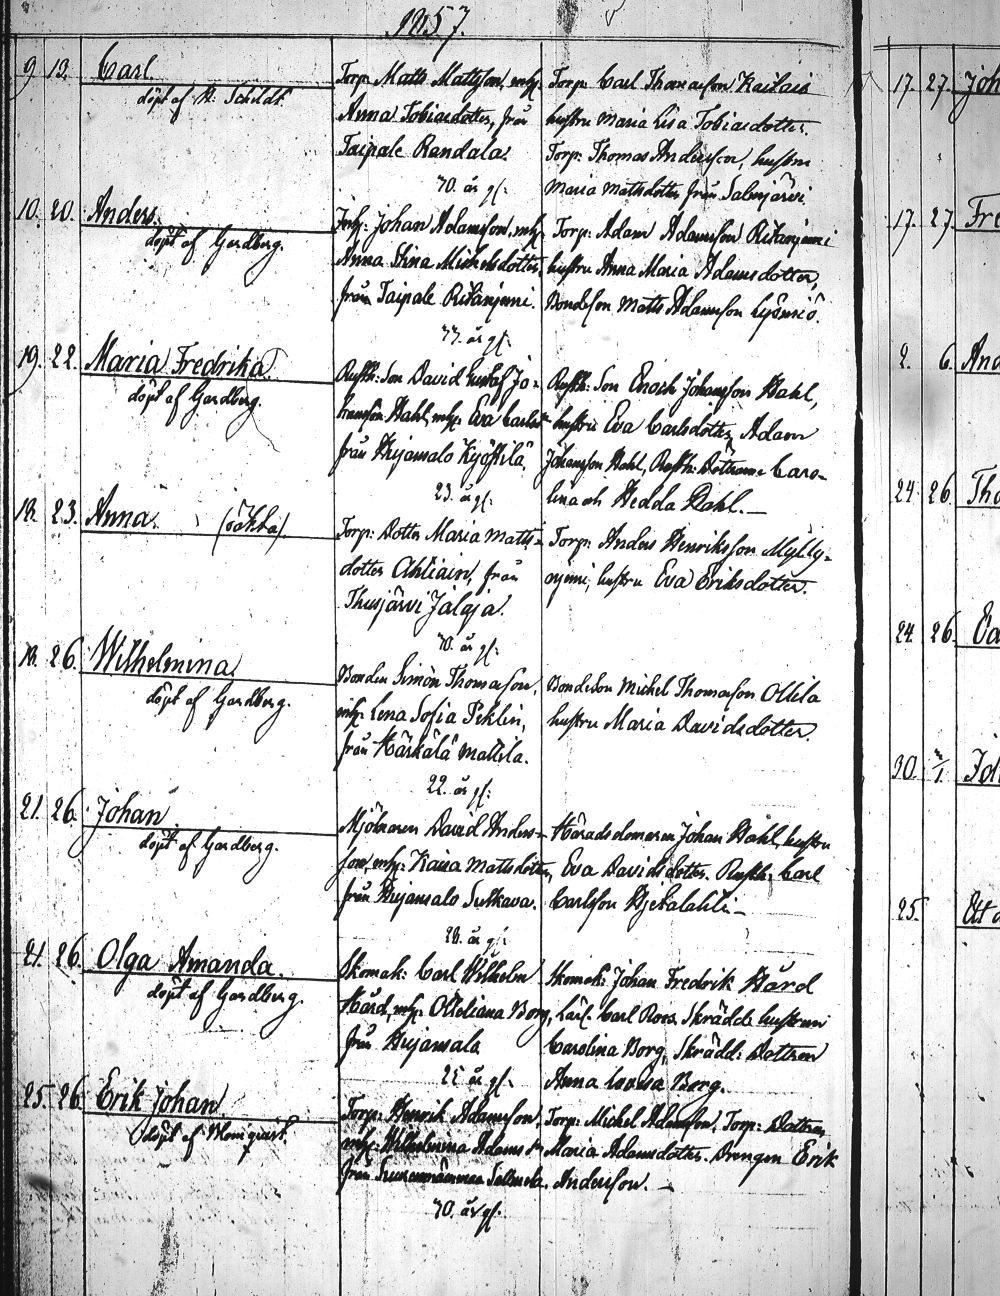 1857.
9. 13. Carl
döpt af A. Schildt.
Torp: Matts Mattsson, mhu:
Anna Tobiasdotter, från
Taipale Randala.
30. år gl:
Torp: Carl Thomasson Kailais
hustru Maria Lisa Tobiasdotter.
Torp: Thomas Andersson, hustru
Maria Mattsdotter från Salmjärvi
10. 20. Anders.
döpt af Gardberg.
Inh: Johan Adamsson, mh:
Anna Stina Michelsdotter,
från Taipale Ritaniemi.
33. år gl:
Torp: Adam Adamsson Ritaniemi
hustru Anna Maria Adamsdotter,
Bondeson Matts Adamsson
19. 22. Maria Fredrika.
döpt af Gardberg.
Rusth: Son David Gustaf Jo-
hansson Dahl, mh: Eva Carlsdr
från Hujansalo Kyöstilä,
23. år gl:
Rusth: Son Enoch Johansson Dahl,
hustru Eva Carlsdotter, Adam
Johansson Dahl, Rusth: Döttrarne Caro-
lina och Hedda Dahl. —
18. 23. Anna. (oäkta).
Torp: Dotter Maria Matts-
dotter Ahtiain, från
Jalaja.
30. år gl:
Torp: Anders Henriksson Mylly-
niemi, hustru Eva Eriksdotter.
18. 26. Wilhelmina.
döpt af Gardberg.
Bonden Simon Thomasson,
mh: Lena Sofia Peklin,
från Härkälä Mattila.
22. år gl:
Bondeson Michel Thomasson Ollila
hustru Maria Davidsdotter.
21. 26. Johan.
döpt af Gardberg.
Mjölnaren David Anders-
son, mh: Kaisa Mattsdotter,
från Hujansalo Sulkava.
28. år gl:
Häradsdomaren Johan Dahl, hustru
Eva Davidsdotter. Rusth: Carl
Carlsson Hjetalahti —
21. 26. Olga Amanda.
döpt af Gardberg.
Skomak: Carl Wilhelm
Hård, mh: Borg,
från Hujansalo
25 år gl:
Skomak: Johan Fredrik Hård
Carl Roos, Skrädd: hustrun
Carolina Borg, Skrädd: Dottren
Anna Lovisa Borg.
25. 26. Erik Johan.
döpt af Blomqvist.
Torp: Henrik Adamsson,
mh: Wilhelmina Adamsdr
från
30. år gl:
Torp: Michel Adamsson, Torp: Dottren
Maria Adamsdotter. Drengen Erik
Andersson. —
17. 27. Joh
17. 27. Fre
2. 6. And
24. 26. Tho
24. 26.
30.
25.